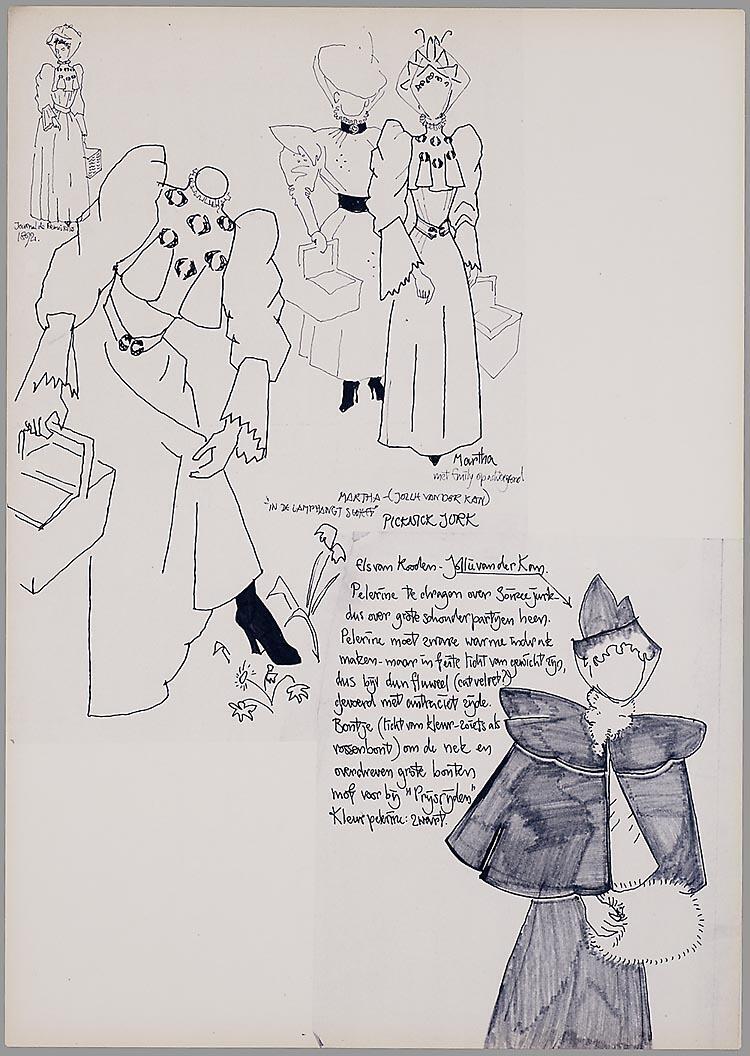 Journal de
1892.
Martha
met Emily op achtergrond
MARTHA - (JOLLIE VAN DER KAN)
"IN DE LAMPHANGT SCHEEF"
PICKNICK JURK
Els van Rooden - Jollie van der Kan.
Pelerine te dragen over Soireé jurk
dus over grote schouderpartijen heen.
Pelerine moet zware warme indruk
maken - maar in feite licht van gewicht zijn,
dus bijv dun fluweel (catvelvet?)
gevoerd met antraciet zijde.
Bontje (licht van kleur - zoiets als
vossenbont) om de nek en
overdreven grote bonten
mof voor bij "Prijsrijden"
Kleur pelerine: zwart.